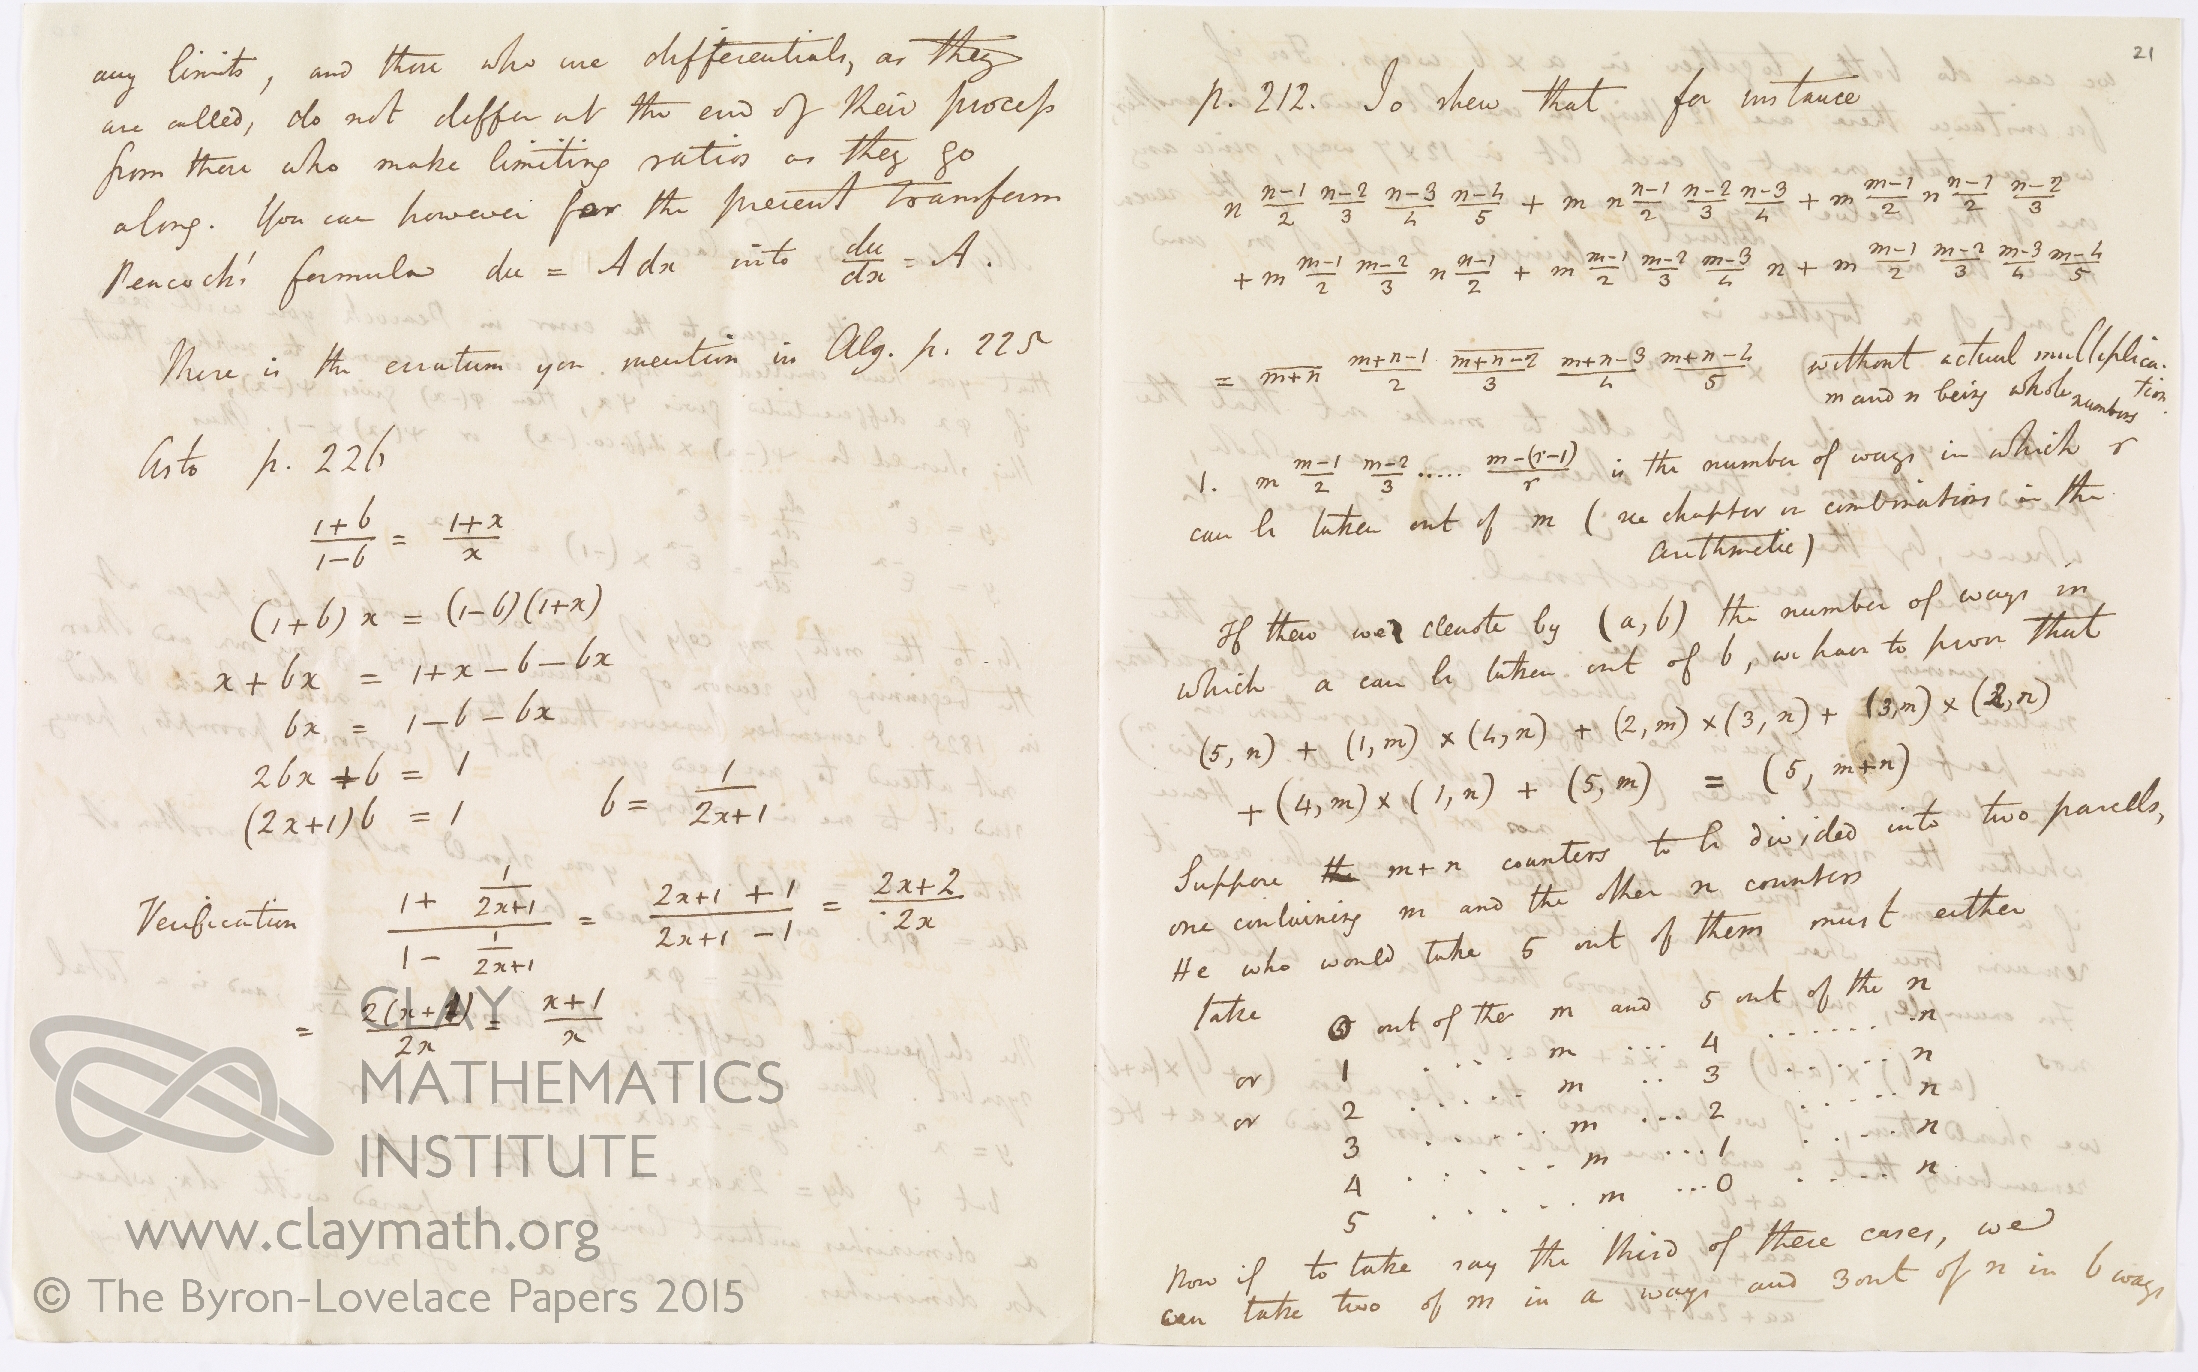 any limits, and those who use differentials, as they
are called, do not differ at the end of their process
from those who make limiting ratios as they go
along. You can however for the present transform
Peacock's formula du = Adx into du/dx = A.
There is the erratum you mention in Alg. p. 225
As to p. 226
(1+b)/(1-b) = (1+x)/x
(1+b)x = (1-b)(1+x)
x + bx = 1+x-b-bx
bx = 1-b-bx
2bx + b = 1
(2x+1)b = 1   b = 1/(2x+1)
Verification (1 + 1/(2x+1))/(1 - 1/(2x+1)) = (2x+1 + 1)/(2x+1 - 1) = (2x+2)/2x
= 2(x+1)/2x = (x+1)/x
21
p. 212. To shew that for instance
n (n-1)/2 (n-2)/3 (n-3)/4 (n-4)/5 + m n (n-1)/2 (n-2)/3 (n-3)/4 + m (m-1)/2 n (n-1)/2 (n-2)/3
+ m (m-1)/2 (m-2)/3 n (n-1)/2 + m (m-1)/2 (m-2)/3 (m-3)/4 n + m (m-1)/2 (m-2)/3 (m-3)/4 (m-4)/5
= m+n (m+n-1)/2 (m+n-2)/3 (m+n-3)/4 (m+n-4)/5 without actual multiplica-
tion
m and n being whole numbers
1. m (m-1)/2 (m-2)/3 ..... (m-(r-1))/r is the number of ways in which r
can be taken out of m (see chapter on combinations in the
Arithmetic)
If then we denote by (a,b) the number of ways in
which a can be taken out of b, we have to prove that
(5,n) + (1,m) × (4,n) + (2,m) × (3,n) + (3,m) × (2,n)
+ (4,m) × (1,n) + (5,m) = (5, m+n)
Suppose the m+n counters to be divided into two parcels,
one containing m and the other n counters
He who would take 5 out of them must either
take 0 out of the m and 5 out of the n
or 1 .... m ... 4 ...... n
or 2 ..... m .. 3 ..... n
3 ..... m ... 2 ..... n
4 ..... m ... 1 ..... n
5 ..... m ... 0 ..... n
Now if to take say the third of these cases, we
can take two of m in a ways and 3 out of n in b ways
CLAY
MATHEMATICS
INSTITUTE
www.claymath.org
© The Byron-Lovelace Papers 2015